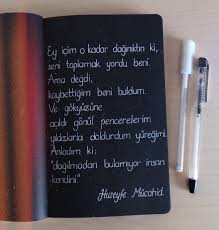 Ey içim o kadar dağınıktın ki,
seni toplamak yordu beni.
Ama değdi,
kaybettiğim beni buldum.
Ve gökyüzüne
açıldı gönül pencerelerim
yıldızlarla doldurdum yüreğimi.
Anladım ki;
"dağılmadan bulamıyor insan
kendini."
Huzeyfe Mücahid.